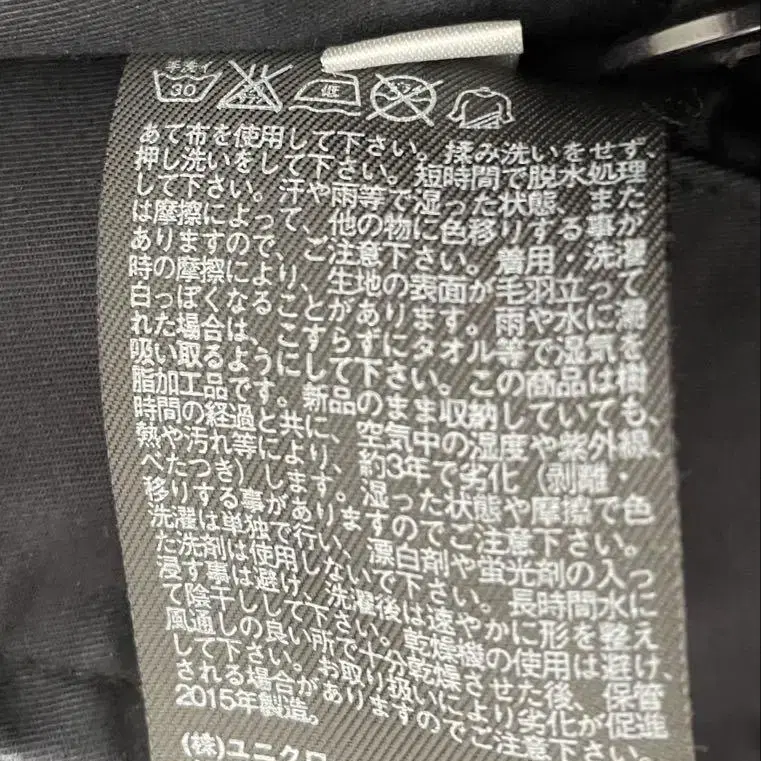 手洗イ
30
低
あて布を使用して下さい。揉み洗いをせず、
押し洗いをして下さい。短時間で脱水処理
して下さい。汗や雨等で湿った状態、また
は摩擦によって、他の物に色移りする事が
ありますので、ご注意下さい。着用・洗濯
時の摩擦により、生地の表面が毛羽立って
白っぽくなることがあります。雨や水に濡
れた場合は、こすらずにタオル等で湿気を
吸い取るようにして下さい。この商品は樹
脂加工品です。新品のまま収納していても、
時間の経過と共に、空気中の湿度や紫外線、
熱や汚れ等により、約3年で劣化（剥離・
べたつき）します。湿った状態や摩擦で色
移りする事がありますのでご注意下さい。
洗濯は単独で行い、漂白剤や蛍光剤の入っ
た洗剤は使用しないで下さい。長時間水に
浸す事は避け、洗濯後は速やかに形を整え
て陰干しして下さい。乾燥機の使用は避け、
風通しの良い所で十分乾燥させた後、保管
して下さい。お取り扱いにより劣化が促進
される場合がありますのでご注意下さい。
2015年製造。
(株)ユニクロ